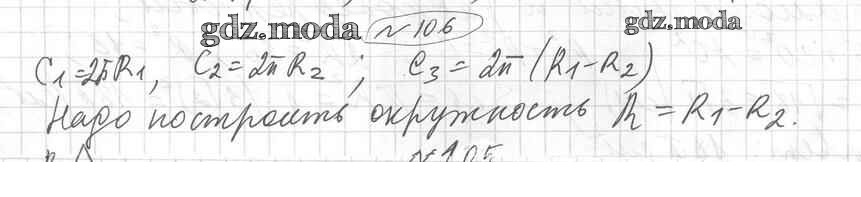 gdz.moda №106 gdz.moda
C₁=2πR₁, C₂=2πR₂; C₃=2π(R₁-R₂)
Надо построить окружность R=R₁-R₂.
№105